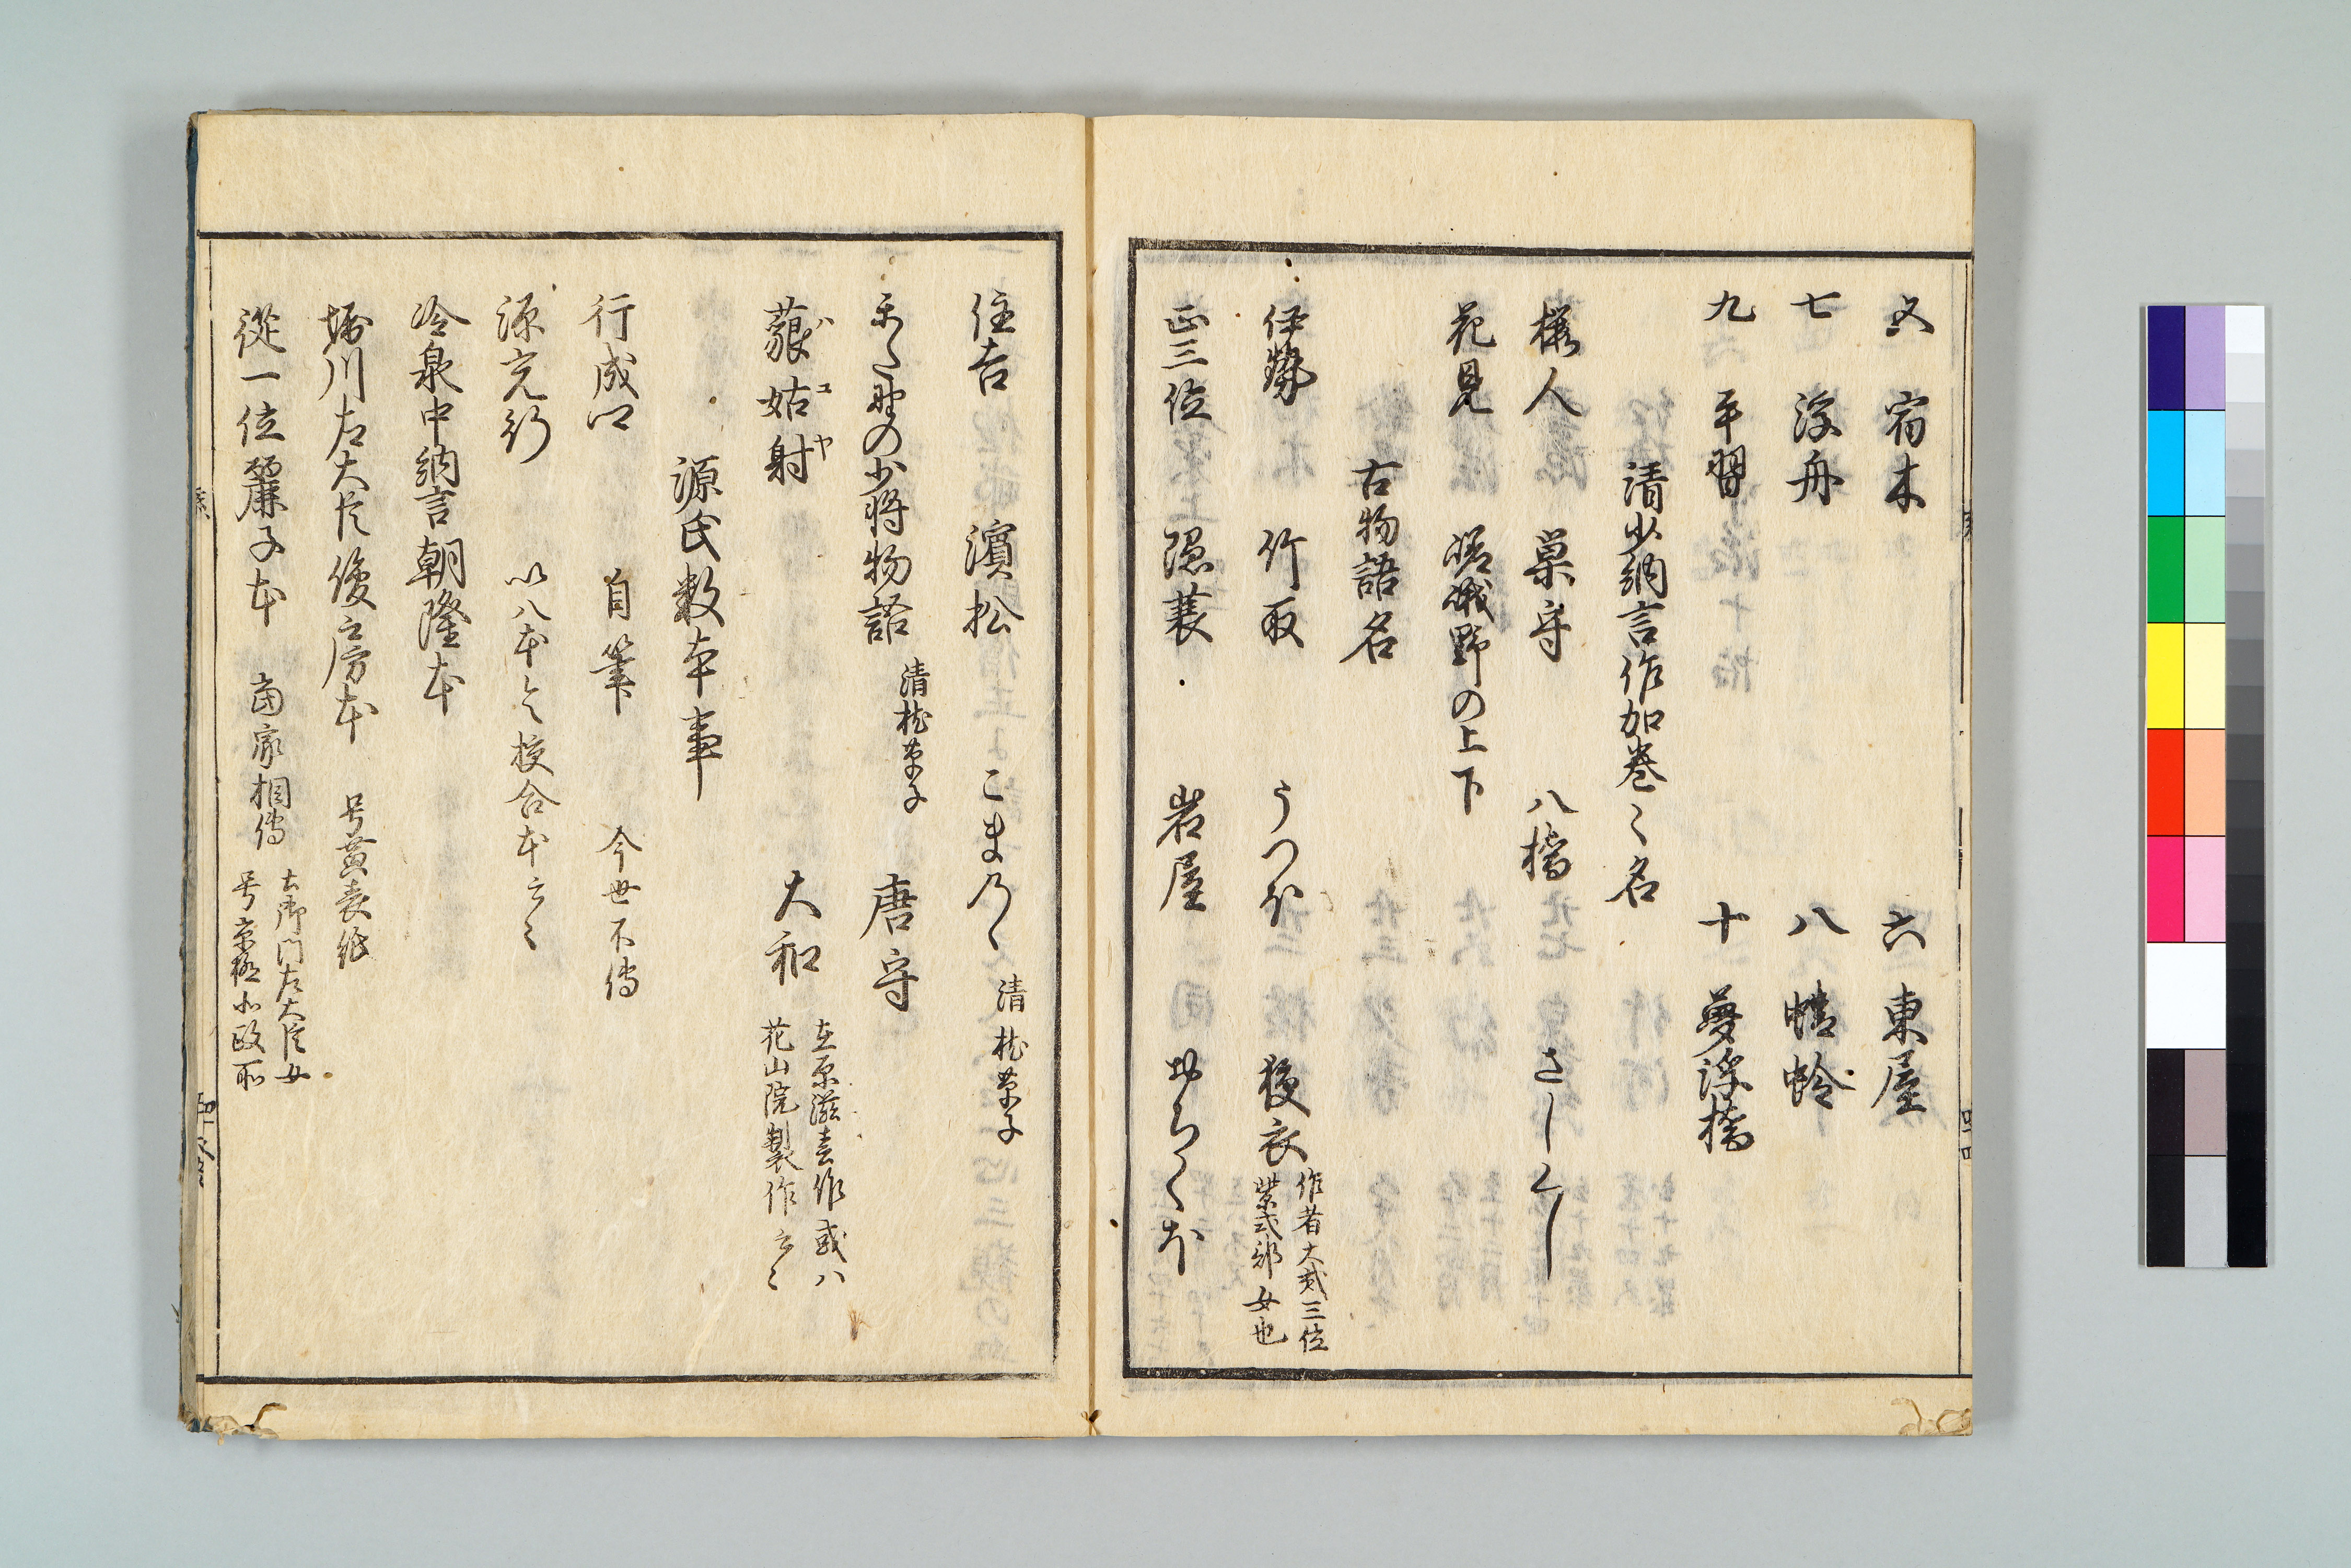 五 宿木 六 東屋
七 浮舟 八 蜻蛉
九 手習 十 夢浮橋
清少納言作加巻〻名
桜人 巣守 八橋 さしくし
花見 嵯峨野の上下
古物語名
伊勢 竹取 うつほ 狭衣 作者大貳三位
紫式部女也
正三位 隠蓑 岩屋 おちくほ
住吉 濱松 こまのゝ 清枕草子
かたのの少将物語 清枕草子 唐守
藐姑射 ハコヤ 大和 在原滋春作或ハ
花山院製作云〻
源氏数本事
行成卿 自筆 今世不傳
源光行 以八本令校合本云〻
冷泉中納言朝隆本
堀川左大臣俊房本 号黄表紙
從一位麗子本 当家相傳 土御門左大臣女
号京極北政所